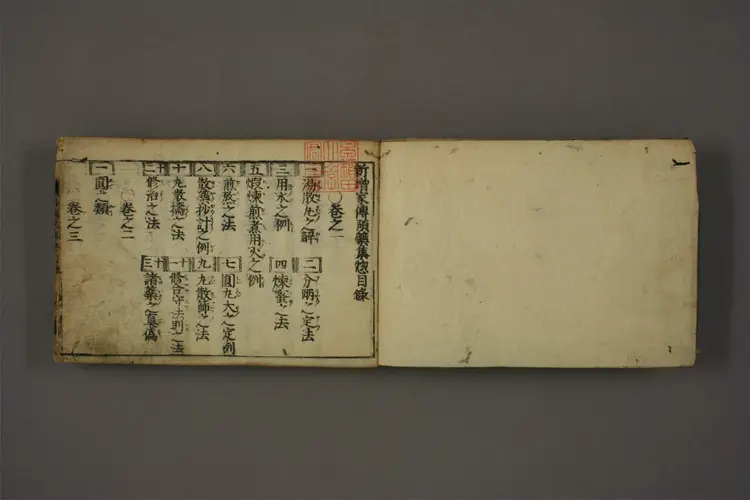 新增家傳預藥集惣目錄
○卷之一
一 湯散丸之解 二 分兩之定法
三 用水之例 四 煉蜜之法
五 煆煉煎煮用火之例
六 煎熬之法 七 圓丸大之定例
八 散藥抄計之例 九 丸散篩之法
十 丸散擣之法 十一 修合守法則之法
十二 修治之法 十三 諸藥之眞僞
○卷之二
一 圓之類
卷之三